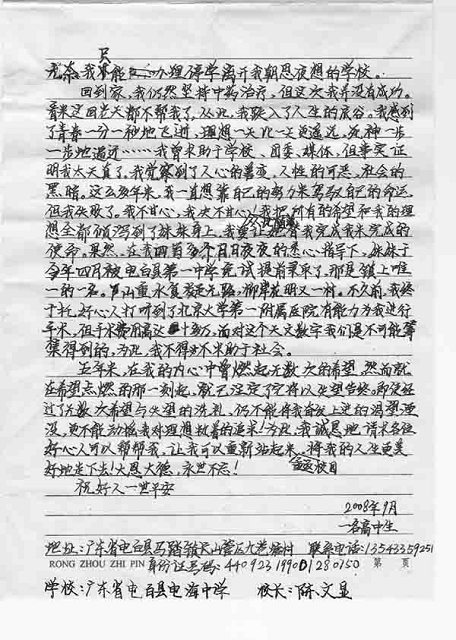 无奈,我只能办理停学离开我朝思夜想的学校。
回到家,我仍然坚持中药治疗,但这次我并没有成功。
看来这回老天都不帮我了,从此,我跌入了人生的底谷。我感到
了青春一分一秒地飞逝,理想一天比一天更遥远,死神一步
一步地逼近……我曾求助于学校、团委、媒体,但事实证
明我太天真了,我觉察到了人心的善变,人性的可恶,社会的
黑暗。这么多年来,我一直想靠自己的努力来驾驭自己的命运,
但我失败了。我不甘心,我决不甘心!我把所有的希望和我的理
想全部倾泻到了妹妹身上,我要让她替我完成我未完成的
使命。果然,在我两百多个日日夜夜的悉心指导下,妹妹于
今年四月被电白县第一中学免试提前录取了,那是镇上唯
一的一名。“山重水复疑无路,柳岸花明又一村。不久前,我终
于托好心人打听到了北京大学第一附属医院有能力为我进行
手术,但手术费用高达十多万,面对这个天文数字我们是不可能筹
集得到的,为此,我不得不求助于社会。
五年来,在我的内心中曾燃起无数次的希望,然而就
在希望点燃的那一刻起,就已注定了它将以失望告终。即使经
过了无数次希望与失望的洗礼,仍不能将我奋发上进的渴望湮
没,更不能动摇我对理想执着的追求!为此,我诚恳地请求各位
好心人可以帮帮我,让我可以重新站起来,将我的人生更美
好地走下去!大恩大德,永世不忘!
祝好人一世平安
2008年9月
一名高中生
地址:广东省电白县马踏镇 联系电话:13543359251
RONG ZHOU ZHI PIN 身份证号码:440923199001280150 第 页
学校:广东省电白县电海中学 校长:陈文显